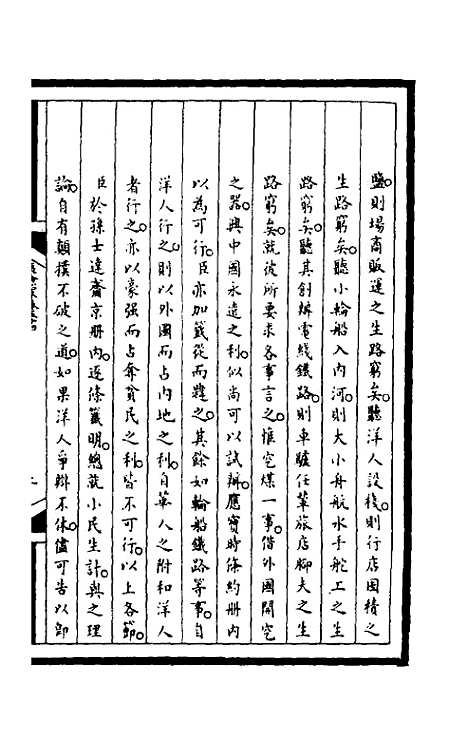 鹽則場商販運之生路窮矣聽洋人設棧則行店囤積之
生路窮矣聽小輪船入內河則大小舟航水手舵工之生
路窮矣聽其創辦電綫鐵路則車驢任輦旅店腳夫之生
路窮矣就彼所要求各事言之惟挖煤一事借外國開挖
之器興中國永遠之利似尚可以試辦應寶時條約冊內
以為可行臣亦加籤從而韙之其餘如輪船鐵路等事自
洋人行之則以外國而占內地之利自華人之附和洋人
者行之亦以豪强而占奪貧民之利皆不可行以上各節
臣於孫士達齎京冊內逐條籤明總就小民生計與之理
論自有顛撲不破之道如果洋人爭辯不休儘可告以卽